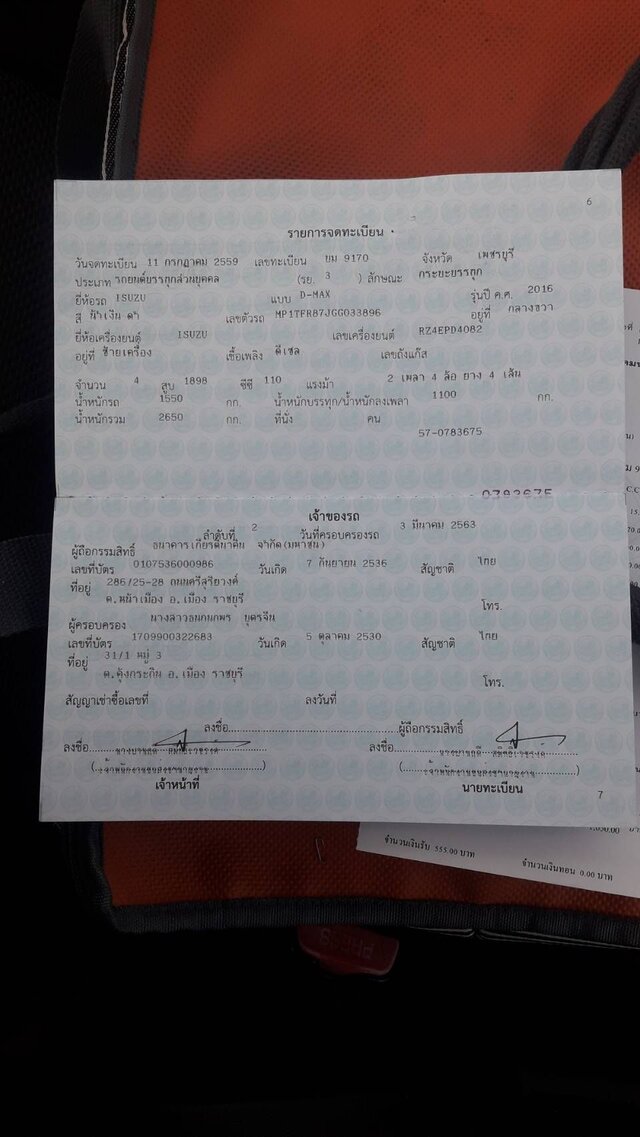 6
รายการจดทะเบียน
วันจดทะเบียน 11 กรกฎาคม 2559 เลขทะเบียน ยม 9170 จังหวัด เพชรบุรี
ประเภท รถยนต์บรรทุกส่วนบุคคล (รย. 3 ) ลักษณะ กระบะบรรทุก
ยี่ห้อรถ ISUZU แบบ D-MAX รุ่นปี ค.ศ. 2016
สี น้ำเงิน ดำ เลขตัวรถ MP1TFR87JGG033896 อยู่ที่ กลางขวา
ยี่ห้อเครื่องยนต์ ISUZU เลขเครื่องยนต์ RZ4EPD4082
อยู่ที่ ซ้ายเครื่อง เชื้อเพลิง ดีเซล เลขถังแก๊ส
จำนวน 4 สูบ 1898 ซีซี 110 แรงม้า 2 เพลา 4 ล้อ ยาง 4 เส้น
น้ำหนักรถ 1550 กก. น้ำหนักบรรทุก/น้ำหนักลงเพลา 1100 กก.
น้ำหนักรวม 2650 กก. ที่นั่ง คน
57-0783675
0783675
เจ้าของรถ
ลำดับที่ 2 วันที่ครอบครองรถ 3 มีนาคม 2563
ผู้ถือกรรมสิทธิ์ ธนาคารเกียรตินาคิน จำกัด(มหาชน)
เลขที่บัตร 0107536000986 วันเกิด 7 กันยายน 2536 สัญชาติ ไทย
ที่อยู่ 286/25-28 ถนนศรีสุริยวงศ์
ต.หน้าเมือง อ.เมือง ราชบุรี
โทร.
ผู้ครอบครอง
เลขที่บัตร 1709900322683 วันเกิด 5 ตุลาคม 2530 สัญชาติ ไทย
ที่อยู่ 31/1 หมู่ 3
ต.คุ้งกระถิน อ.เมือง ราชบุรี
โทร.
สัญญาเช่าซื้อเลขที่ ลงวันที่
ลงชื่อ ผู้ถือกรรมสิทธิ์
ลงชื่อ ลงชื่อ
เจ้าหน้าที่ นายทะเบียน
7
จำนวนเงินรับ 555.00 บาท
จำนวนเงินทอน 0.00 บาท